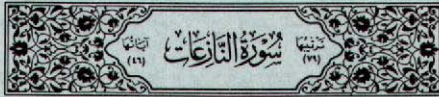 ترتيبها (٧٩)
سُورَةُ النَّازِعَات
آياتها (٤٦)